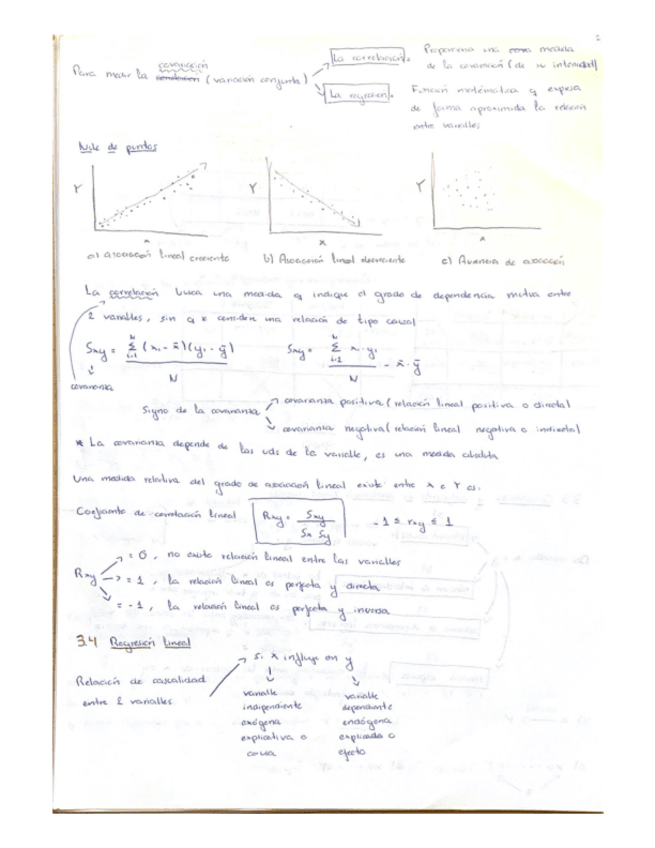 Para medir la covariación (variación conjunta)
La correlación.
Proporciona una medida
de la covariación (de su intensidad)
La regresión.
Función matemática q expresa
de forma aproximada la relación
entre variables
Nube de puntos
Y
Y
Y
x
x
x
a) asociación lineal creciente
b) Asociación lineal decreciente
c) Ausencia de asociación
La correlación busca una medida q indique el grado de dependencia mutua entre
2 variables, sin q se considere una relación de tipo causal
Sxy = Σ (xi - x̄)(yi - ȳ) / N
Sxy = Σ xi · yi / N - x̄ · ȳ
covarianza
Signo de la covarianza
covarianza positiva (relación lineal positiva o directa)
covarianza negativa (relación lineal negativa o indirecta)
* La covarianza depende de las uds de la variable, es una medida absoluta
Una medida relativa del grado de asociación lineal existe entre x e Y es:
Coeficiente de correlación lineal
Rxy = Sxy / Sx Sy
-1 ≤ rxy ≤ 1
Rxy
= 0, no existe relación lineal entre las variables
= 1, la relación lineal es perfecta y directa
= -1, la relación lineal es perfecta y inversa
3.4 Regresión lineal
Relación de casualidad
entre 2 variables
si x influye en y
variable
independiente
exógena
explicativa o
causa
variable
dependiente
endógena
explicada o
efecto